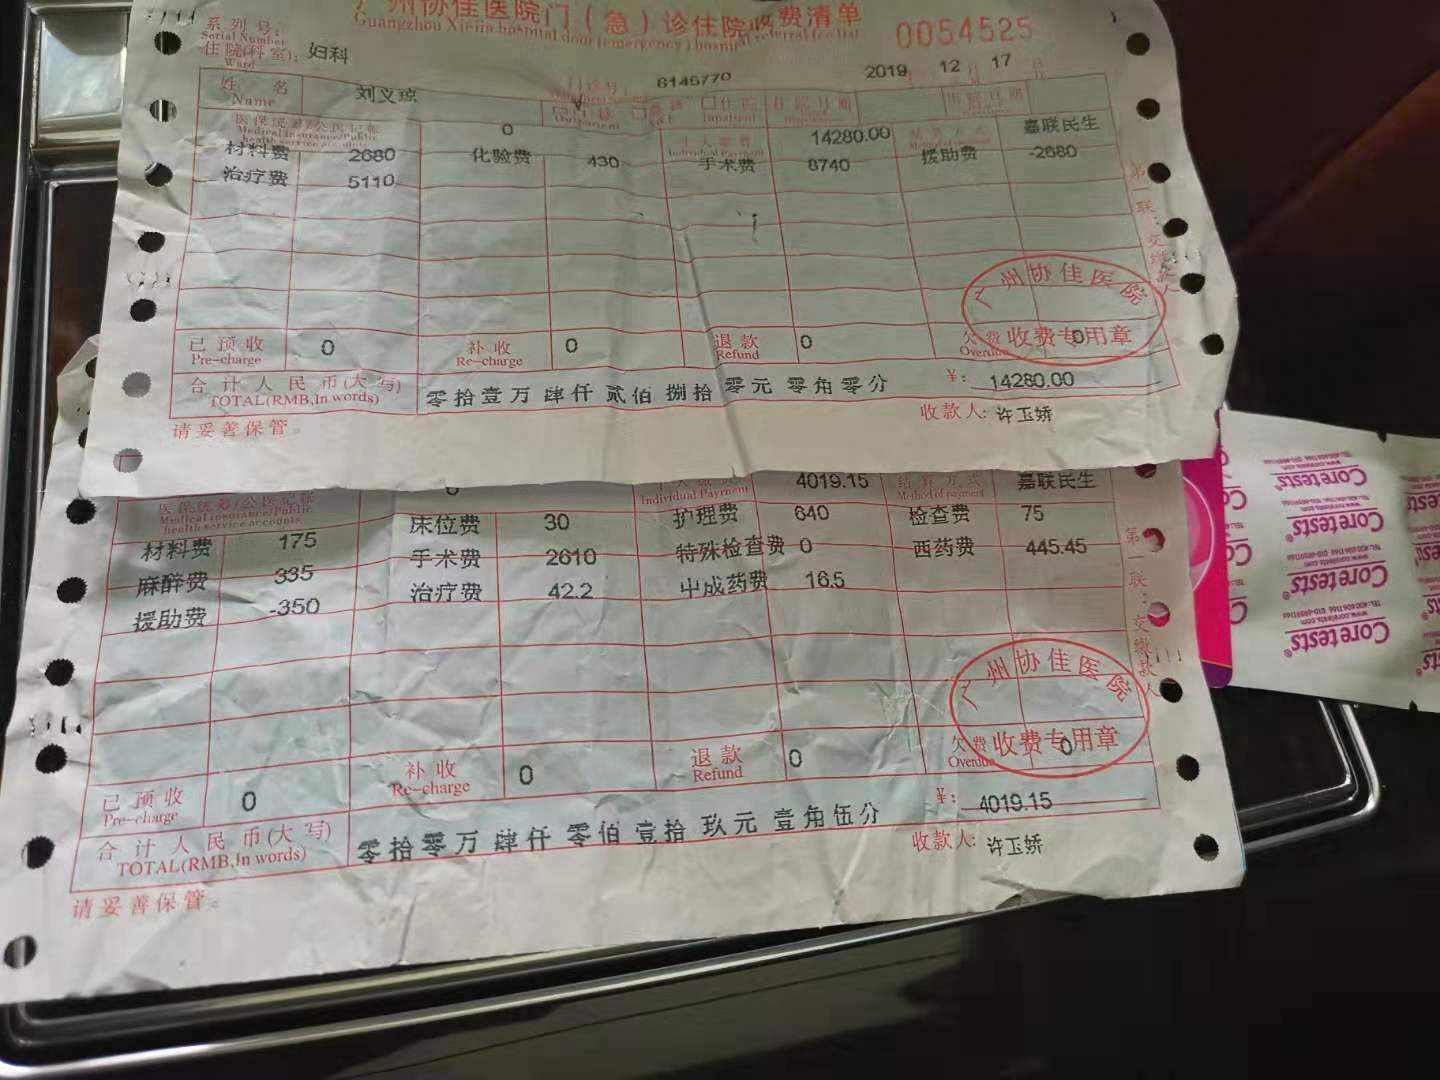 广州协佳医院门（急）诊住院收费清单
Guangzhou Xiejia hospital door (emergency) hospital referral fee list
系列号: 0054525
Serial Number
住院(科室): 妇科
Ward
6146770 2019 12 17
姓名 刘义琼
Name
门诊 急诊 住院 住院日期 出院日期
Outpatient Inpatient
医保统筹/公医记帐 0 个人缴费 14280.00 结算方式 嘉联民生
Medical insurance/Public Individual Payment Method of payment
health service accounts
材料费 2680 化验费 430 手术费 8740 援助费 -2680
治疗费 5110
已预收 0 补收 0 退款 0 欠费 0
Pre-charge Re-charge Refund Overdue
合计人民币(大写) 零拾壹万肆仟贰佰捌拾零元零角零分 ¥: 14280.00
TOTAL(RMB,In words)
请妥善保管。 收款人: 许玉娇
第一联:交缴款人
广州协佳医院
收费专用章
医保统筹/公医记帐 0 个人缴费 4019.15 结算方式 嘉联民生
Medical insurance/Public Individual Payment Method of payment
health service accounts
材料费 175 床位费 30 护理费 640 检查费 75
麻醉费 335 手术费 2610 特殊检查费 0 西药费 445.45
援助费 -350 治疗费 42.2 中成药费 16.5
已预收 0 补收 0 退款 0 欠费 0
Pre-charge Re-charge Refund Overdue
合计人民币(大写) 零拾零万肆仟零佰壹拾玖元壹角伍分 ¥: 4019.15
TOTAL(RMB,In words)
请妥善保管。 收款人: 许玉娇
第一联:交缴款人
广州协佳医院
收费专用章
Coretests®
www.coretests.com
Coretests®
www.coretests.com
Coretests®
www.coretests.com